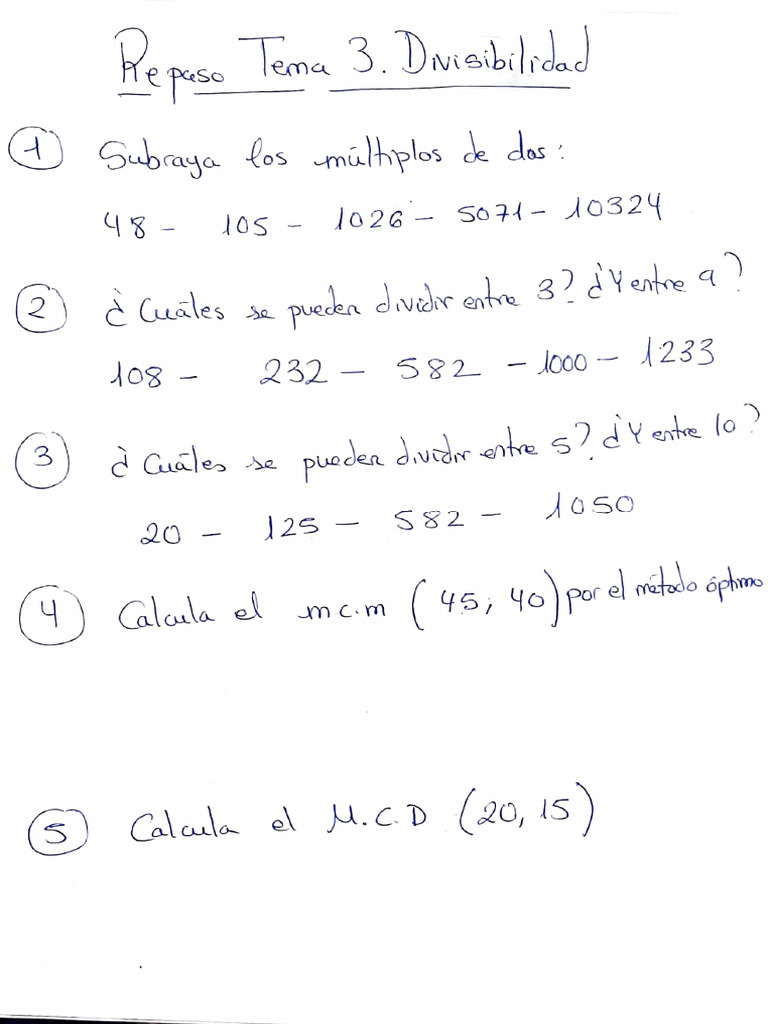 Repaso Tema 3. Divisibilidad
1 Subraya los múltiplos de dos:
48 - 105 - 1026 - 5071 - 10324
2 ¿Cuáles se pueden dividir entre 3? ¿Y entre 9?
108 - 232 - 582 - 1000 - 1233
3 ¿Cuáles se pueden dividir entre 5? ¿Y entre 10?
20 - 125 - 582 - 1050
4 Calcula el m.c.m (45, 40) por el método óptimo
5 Calcula el M.C.D (20, 15)